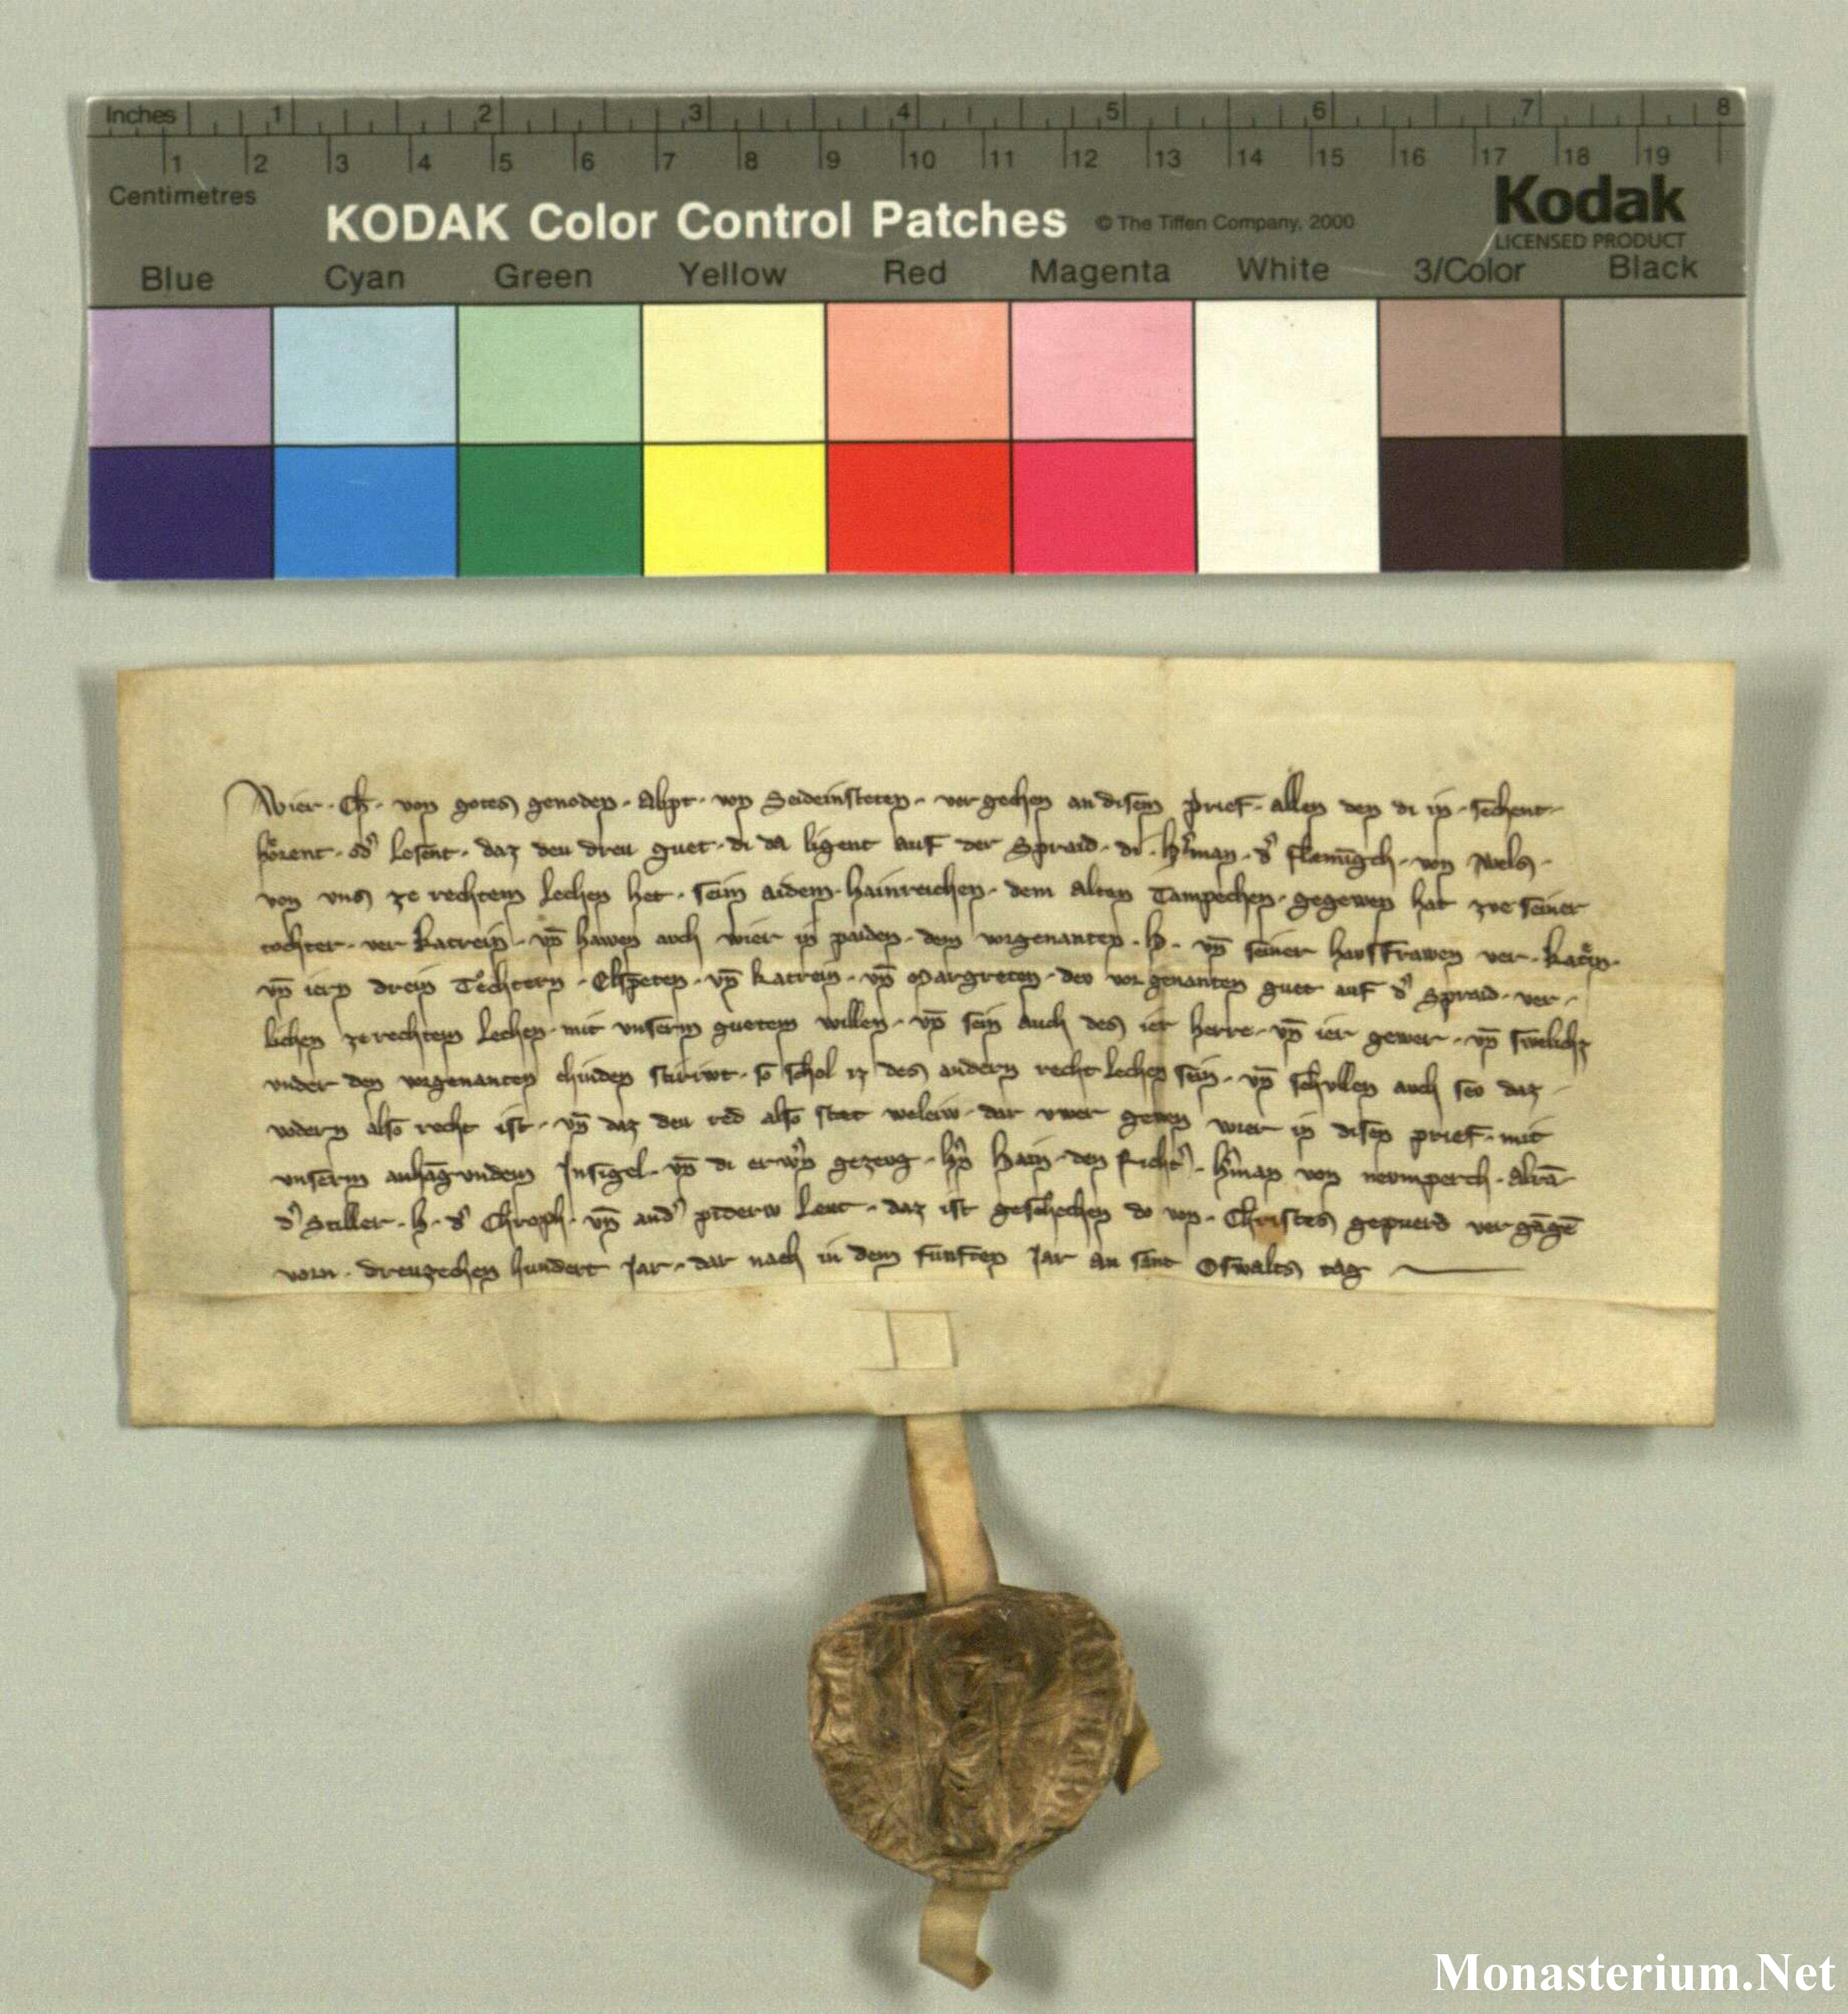 Inches 1 2 3 4 5 6 7 8
1 2 3 4 5 6 7 8 9 10 11 12 13 14 15 16 17 18 19
Centimetres
KODAK Color Control Patches © The Tiffen Company, 2000 Kodak
LICENSED PRODUCT
Blue Cyan Green Yellow Red Magenta White 3/Color Black
Wier · Ch · von gotes genoden · Abpt · von Seideinsteten · vergechen an disem prief · allen den di in · sechent ·
hoͤrent · od' lesent · daz deu dreu guet · di da ligent auf der Spraid · di · h'man · d' flemīgch · von Wels ·
von vns ze rechtem lechen het · seim aidem · hainreichen · dem alten Tampechen · gegewen hat zve seiner
tochter · ver katrein · vn̄ hawen auch wier in paiden · dem vorgenanten · H · vn̄ seiner hausfrawen ver ·
vn̄ iern drein Toͤchtern · Elspeten · vn̄ katrein · vn̄ Margreten · dev vor genanten guet auf d' Spraid · ver ·
lichen ze rechtem lechen · mit vnserm guetem willen · vn̄ sein auch des ier herre · vn̄ ier gewer · vn̄ swelichz
vnder den vorgenanten chinden stiriwt · so schol iz des andern recht lechen sein · vn̄ schvllen auch seo daz ·
vodern also recht ist · vn̄ daz deu red also stet weleiw · dar vwer gewen wier in disen prief · mit
vnserm anhāgvndem Insigel · vn̄ di erw'n gezeug · h'n Hain · den Richt' · h'man von nevmperch · alrā
d' Stiller · H · d' Chroph · vn̄ and' piderw leut · daz ist geschechen do von · Christes gepuerd vergāgē
vorn · dreuzechen hundert Jar · dar nach in dem funften Jar an sant Oswalts tag
Monasterium.Net